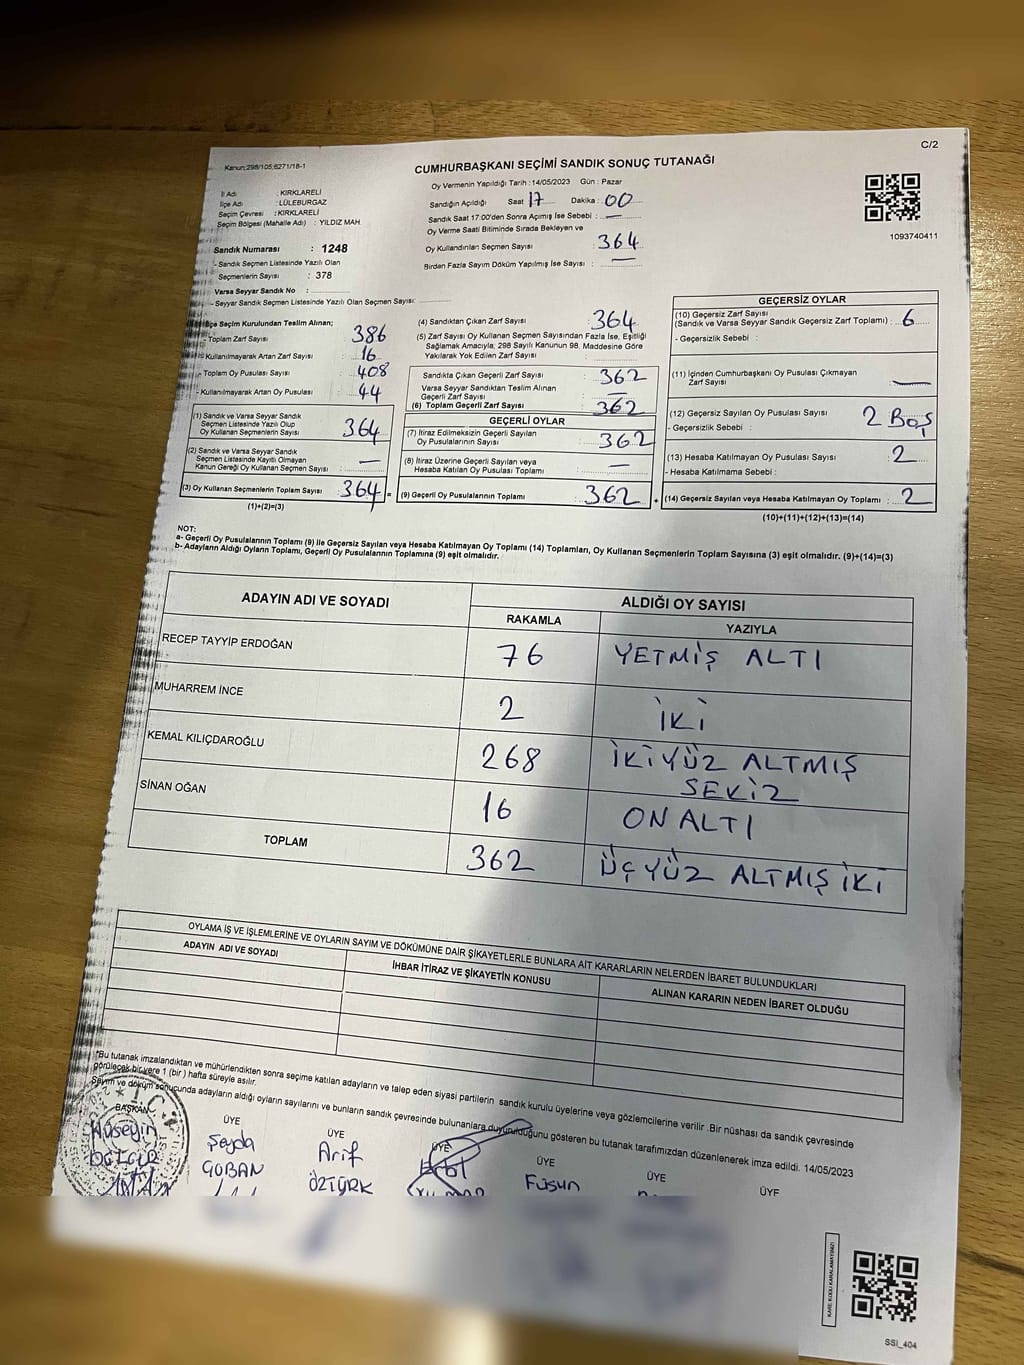 C/2
Kanun:298/105,6271/18-1
CUMHURBAŞKANI SEÇİMİ SANDIK SONUÇ TUTANAĞI
İl Adı : KIRKLARELİ
İlçe Adı : LÜLEBURGAZ
Seçim Çevresi : KIRKLARELİ
Seçim Bölgesi (Mahalle Adı) : YILDIZ MAH.
Sandık Numarası : 1248
- Sandık Seçmen Listesinde Yazılı Olan
Seçmenlerin Sayısı : 378
Varsa Seyyar Sandık No :
- Seyyar Sandık Seçmen Listesinde Yazılı Olan Seçmen Sayısı:
Oy Vermenin Yapıldığı Tarih : 14/05/2023 Gün : Pazar
Sandığın Açıldığı Saat 17 Dakika : 00
Sandık Saat 17:00'den Sonra Açımış İse Sebebi : —
Oy Verme Saati Bitiminde Sırada Bekleyen ve
Oy Kullandırılan Seçmen Sayısı : 364
Birden Fazla Sayım Döküm Yapılmış İse Sayısı : —
1093740411
İlçe Seçim Kurulundan Teslim Alınan;
- Toplam Zarf Sayısı 386
- Kullanılmayarak Artan Zarf Sayısı : 16
- Toplam Oy Pusulası Sayısı : 408
- Kullanılmayarak Artan Oy Pusulası : 44
(1) Sandık ve Varsa Seyyar Sandık
Seçmen Listesinde Yazılı Olup
Oy Kullanan Seçmenlerin Sayısı : 364
(2) Sandık ve Varsa Seyyar Sandık
Seçmen Listesinde Kayıtlı Olmayan
Kanun Gereği Oy Kullanan Seçmen Sayısı : —
(3) Oy Kullanan Seçmenlerin Toplam Sayısı : 364 =
(1)+(2)=(3)
(4) Sandıktan Çıkan Zarf Sayısı : 364
(5) Zarf Sayısı Oy Kullanan Seçmen Sayısından Fazla İse, Eşitliği
Sağlamak Amacıyla, 298 Sayılı Kanunun 98. Maddesine Göre
Yakılarak Yok Edilen Zarf Sayısı :
Sandıkta Çıkan Geçerli Zarf Sayısı : 362
Varsa Seyyar Sandıktan Teslim Alınan
Geçerli Zarf Sayısı : —
(6) Toplam Geçerli Zarf Sayısı : 362
GEÇERLİ OYLAR
(7) İtiraz Edilmeksizin Geçerli Sayılan
Oy Pusulalarının Sayısı : 362
(8) İtiraz Üzerine Geçerli Sayılan veya
Hesaba Katılan Oy Pusulası Toplamı : —
(9) Geçerli Oy Pusulalarının Toplamı : 362 +
GEÇERSİZ OYLAR
(10) Geçersiz Zarf Sayısı
(Sandık ve Varsa Seyyar Sandık Geçersiz Zarf Toplamı) : 6
- Geçersizlik Sebebi :
(11) İçinden Cumhurbaşkanı Oy Pusulası Çıkmayan
Zarf Sayısı : —
(12) Geçersiz Sayılan Oy Pusulası Sayısı : 2 Boş
- Geçersizlik Sebebi :
(13) Hesaba Katılmayan Oy Pusulası Sayısı : 2
- Hesaba Katılmama Sebebi :
(14) Geçersiz Sayılan veya Hesaba Katılmayan Oy Toplamı : 2
(10)+(11)+(12)+(13)=(14)
NOT:
a- Geçerli Oy Pusulalarının Toplamı (9) ile Geçersiz Sayılan veya Hesaba Katılmayan Oy Toplamı (14) Toplamları, Oy Kullanan Seçmenlerin Toplam Sayısına (3) eşit olmalıdır. (9)+(14)=(3)
b- Adayların Aldığı Oyların Toplamı, Geçerli Oy Pusulalarının Toplamına (9) eşit olmalıdır.
ADAYIN ADI VE SOYADI ALDIĞI OY SAYISI
RAKAMLA YAZIYLA
RECEP TAYYİP ERDOĞAN 76 YETMİŞ ALTI
MUHARREM İNCE 2 İKİ
KEMAL KILIÇDAROĞLU 268 İKİYÜZ ALTMIŞ
SEKİZ
SİNAN OĞAN 16 ON ALTI
TOPLAM 362 ÜÇYÜZ ALTMIŞ İKİ
OYLAMA İŞ VE İŞLEMLERİNE VE OYLARIN SAYIM VE DÖKÜMÜNE DAİR ŞİKAYETLERLE BUNLARA AİT KARARLARIN NELERDEN İBARET BULUNDUKLARI
ADAYIN ADI VE SOYADI İHBAR İTİRAZ VE ŞİKAYETİN KONUSU ALINAN KARARIN NEDEN İBARET OLDUĞU
*Bu tutanak imzalandıktan ve mühürlendikten sonra seçime katılan adayların ve talep eden siyasi partilerin sandık kurulu üyelerine veya gözlemcilerine verilir .Bir nüshası da sandık çevresinde
görülecek bir yere 1 (bir ) hafta süreyle asılır.
Sayım ve döküm sonucunda adayların aldığı oyların sayılarını ve bunların sandık çevresinde bulunanlara duyurulduğunu gösteren bu tutanak tarafımızdan düzenlenerek imza edildi. 14/05/2023
BAŞKAN ÜYE ÜYE ÜYE ÜYE ÜYE ÜYE
Hüseyin Şeyda Arif Füsun
ÇOBAN ÖZTÜRK
T.C.
KARE KODU KARALAMAYINIZ!
SSI_404